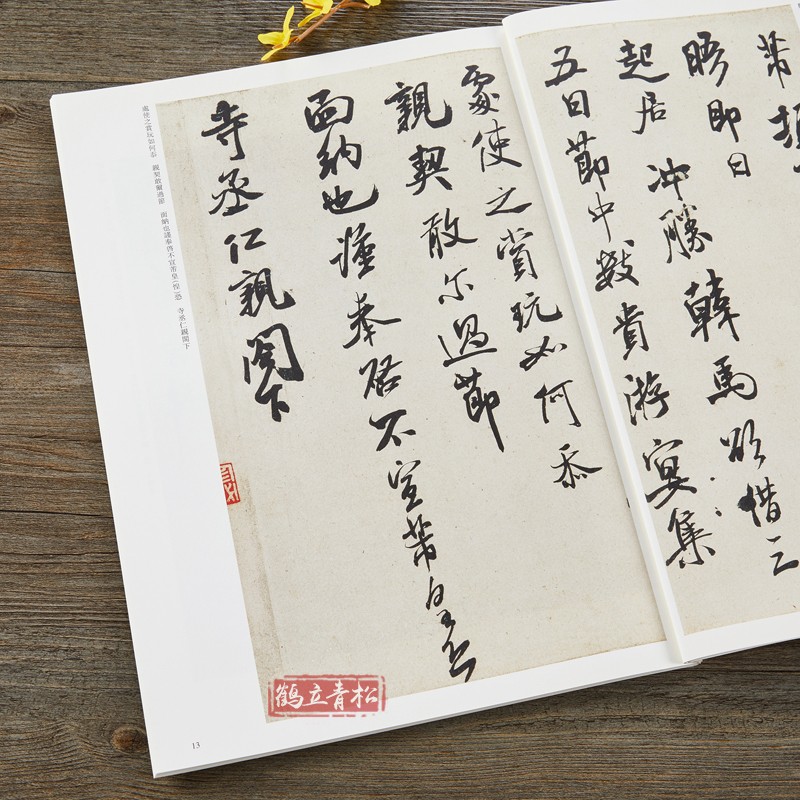 芾
晤即日
起居冲勝韓馬欲借三
五日節中數貴游宴集
處使之賞玩如何忝
親契敢尔過節
面納也謹奉啓不宣芾皇恐
寺丞仁親閣下
處使之賞玩如何忝 親契敢爾過節 面納也謹奉啓不宣芾皇(惶)恐 寺丞仁親閣下
13
鶴立青松